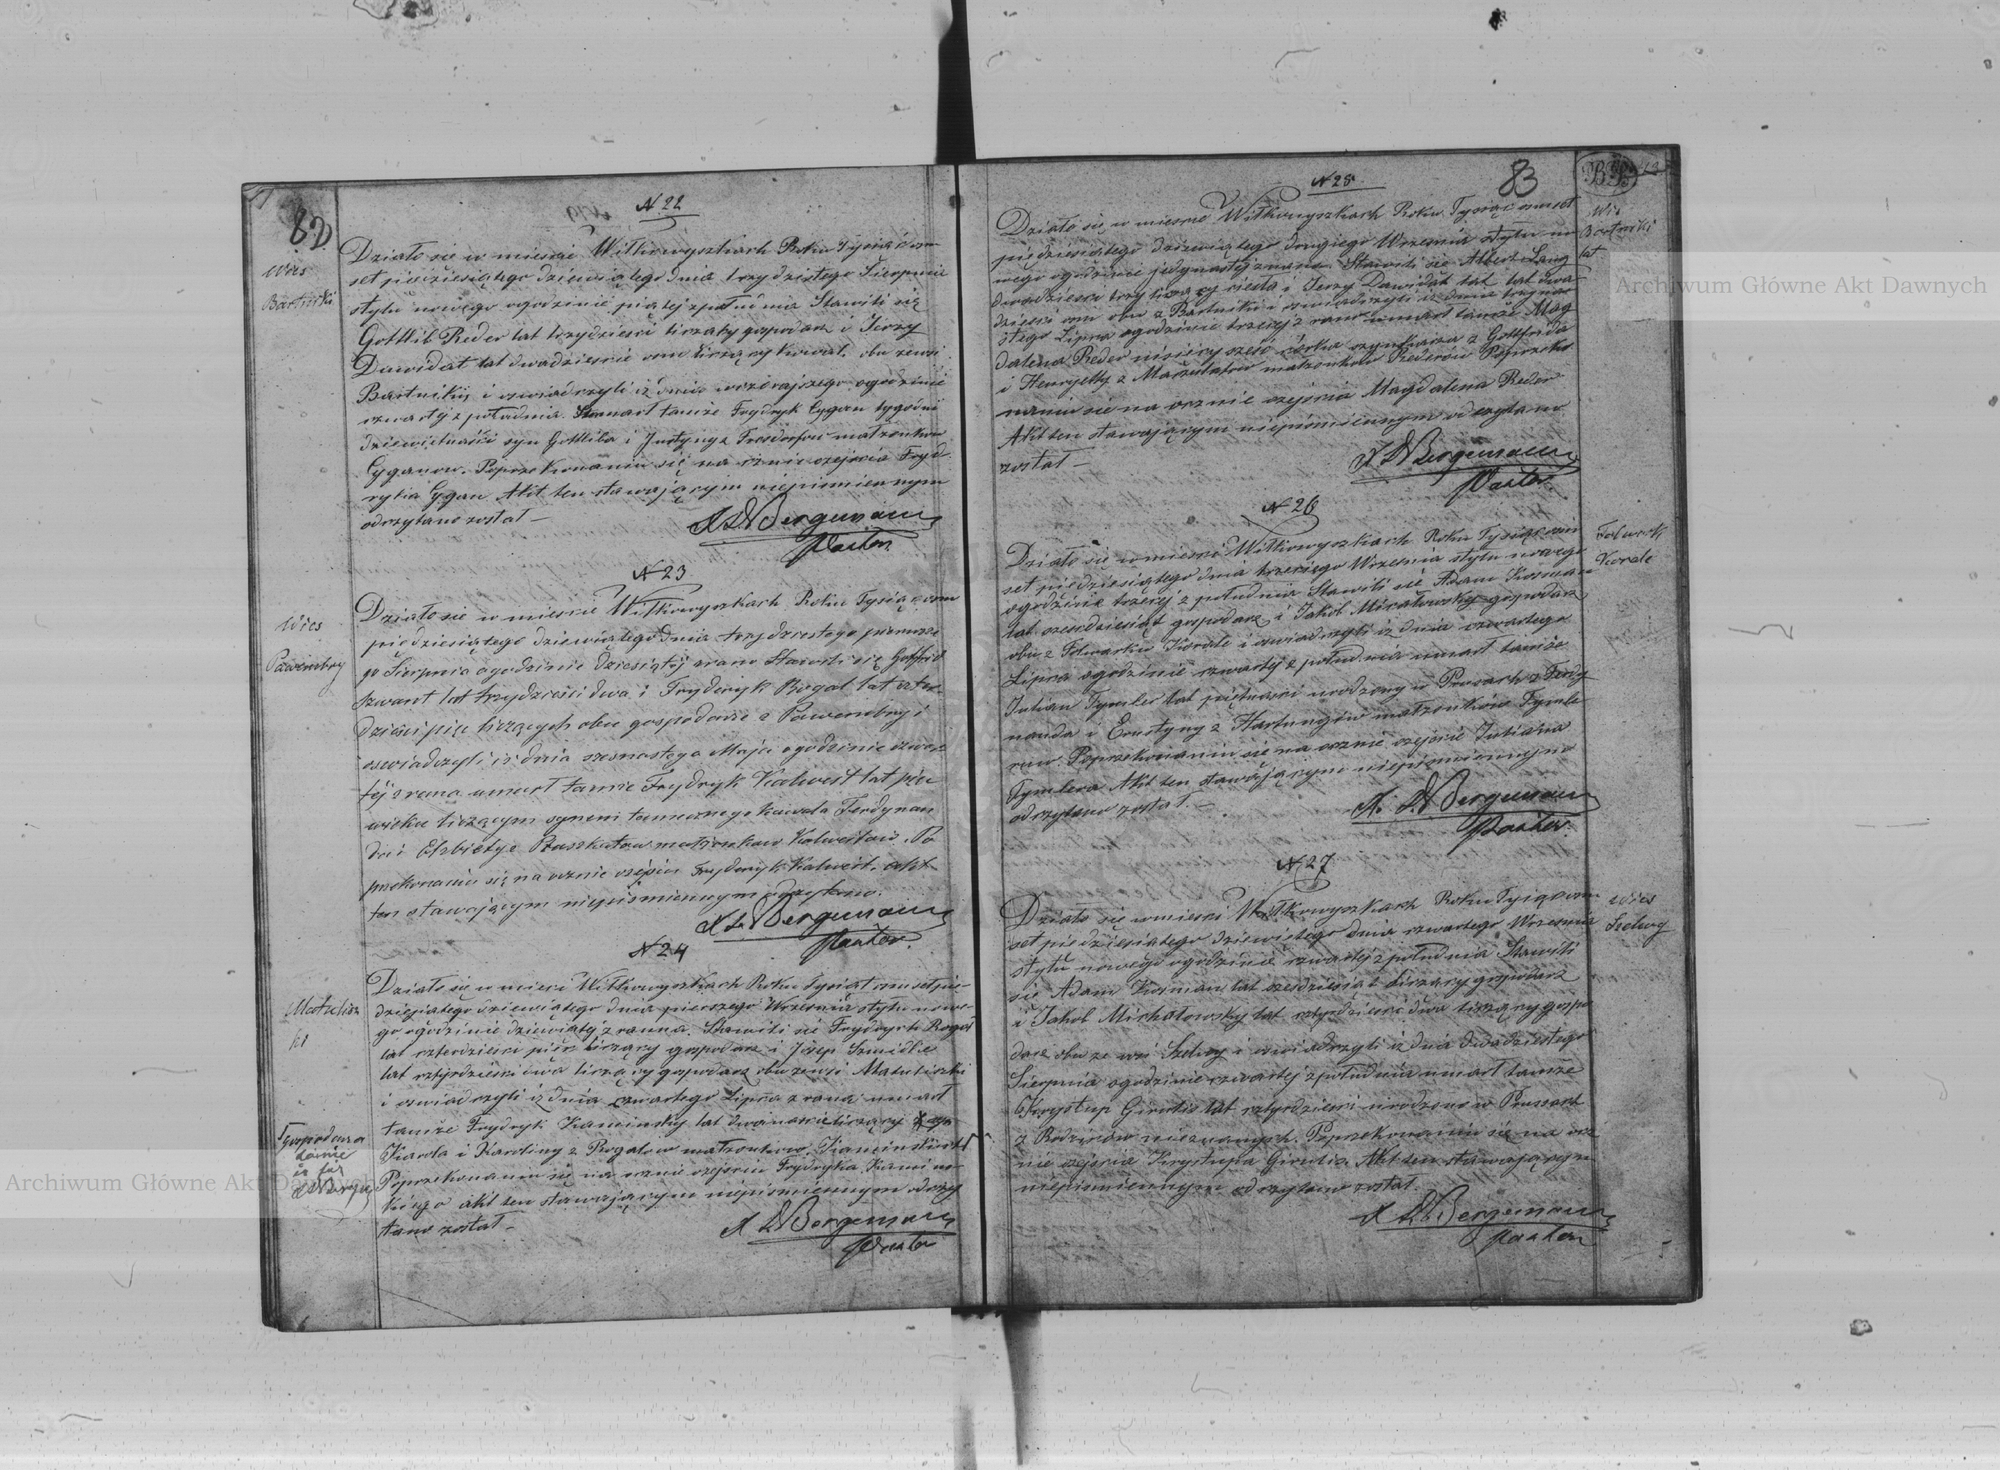 82
N 22
Wieś
Bartniki
Działo się w mieście Wiłkowyszkach Roku Tysiąc osm
set pięćdziesiątego dziewiątego dnia trzydziestego Sierpnia
stylu nowego o godzinie piątej z południa Stawili się
Gottlib Reder lat trzydzieści liczący gospodarz i Jerzy
Dawidat lat dwadzieście osm liczący kowal, obu ze wsi
Bartniki, i oswiadczyli iż dnia wczorajszego o godzinie
czwartej z południa umarł tamże Frydryk Cygan tygodni
dziewiętnaści syn Gottliba i Justyny z małżonków
Cyganow. Po przekonaniu się na ocznie o zejściu Fryd
ryka Cygan Akt ten stawającym niepismiennym
odczytano został —
X L Bergemann
Pastor
N 23
Wieś
Pawembry
Działo się w mieście Wiłkowyszkach Roku Tysiąc osm
pięćdziesiątego dziewiątego Dnia trzydziestego pierwsze
go Sierpnia o godzinie dziesiątej zrana Stawili się Gottfrid
Szwart lat trzydzieści dwa i Fryderyk Rogal lat czter
dzieści pięć liczących obu gospodarze z Pawembry i
oswiadczyli iż dnia szesnastego Maja o godzinie czwar
tej z rana umarł tamże Frydryk Kalwejt lat pięć
wieku liczącym synem tamecznego kowala Ferdynan
da i Elżbiety z małżonkow Kalwejtow. Po
przekonaniu się na ocznie o zejściu Fryderyk Kalweit, akt
ten stawającym niepismiennym odczytano.
X L Bergemann
Pastor.
N 24
Matulisz
ki
Działo się w mieści Wiłkowyszkach Roku Tysiąc osmset pię
dziesiątego dziewiątego dnia pierszego Wrzesnia stylu nowe
go o godzinie dziewiąty z ranna. Stawili się Frydrych Rogal
lat czterdzieści pięć liczący gospodarz i Józep Szmidke
lat cztyrdzieści dwa liczący gospodarz obu ze wsi Matuliszki
i oswiadczyli iż dnia czwartego Lipca z rana umarł
tamże Frydryk Kaminsky lat dwanaście liczący syn
Karola i Karoliny z Rogalow małżonkow Kaminskich
Po przekonaniu się na ocznie o zejściu Frydryka Kamins
kiego akt ten stawającym niepismiennym odczy
tano został —
Gospodarza
tamże
X L Bergemann
Pastor
83
N 25
Wieś
Bartniki
Działo się w mieście Wiłkowyszkach Roku Tysiąc osmset
pięćdziesiątego dziewiątego drugiego Wrzesnia stylu no
wego o godzinie jedynastej z rana Stawili się Albert Lang lat
dwadzieścia trzy liczący ciesla i Jerzy Dawidat lat dwa
dzieści osm obu z Bartniki i oswiadczyli iż dnia trzyna
stego Lipca o godzinie trzeciej z rana umarł tamże Mag
dalena Reder miesięcy sześć córka szynkarza z Gottfrida
i Henryetty z małżonkow Rederów Po przeko
naniu się na ocznie o zejściu Magdalena Reder
Akt ten stawającym niepismiennym odczytano
został —
X L Bergemann
Pastor.
N 26
Folwark
Korale
Działo się w mieści Wiłkowyszkach Roku Tysiąc osm
set pięćdziesiątego dnia trzeciego Wrzesnia stylu nowego
o godzinie trzeciej z południa Stawili się Adam Kosman
lat szesdziesiąt gospodarz i Jakob Michałowsky gospodarz
obu z Folwarku Korale i oswiadczyli iż dnia czwartego
Lipca o godzinie czwartej z południa umarł tamże
Julian Tymler lat piętnaści urodzony w Prusach z Ferdy
nanda i Ernstyny z Hartungów małżonków Tymle
row. Po przekonaniu się na ocznie o zejście Juliana
Tymlera Akt ten stawającym niepismiennym
odczytano został. —
X. L Bergemann
Pastor.
N 27
Wieś
Szelwy
Działo się w mieści Wiłkowyszkach Roku Tysiąc osm
set pięćdziesiątego dziewiątego dnia czwartego Wrzesnia
stylu nowego o godzinie czwartej z południa Stawili
się Adam Kosman lat szesdziesiąt liczący gospodarz
i Jakob Michałowsky lat cztyrdzieści dwa liczący gospo
darz obu ze wsi Szelwy i oswiadczyli iż dnia dwudziestego
Sierpnia o godzinie czwartej z południa umarł tamże
Krystup Girulis lat cztyrdzieści urodzono w Prusach
z Rodziców nieznanych. Po przekonaniu się na ocz
nie o zejściu Krystupa Girulis Akt ten stawającym
niepismiennym odczytano został.
X L Bergemann
Pastor
Archiwum Główne Akt Dawnych
Archiwum Główne Akt Dawnych